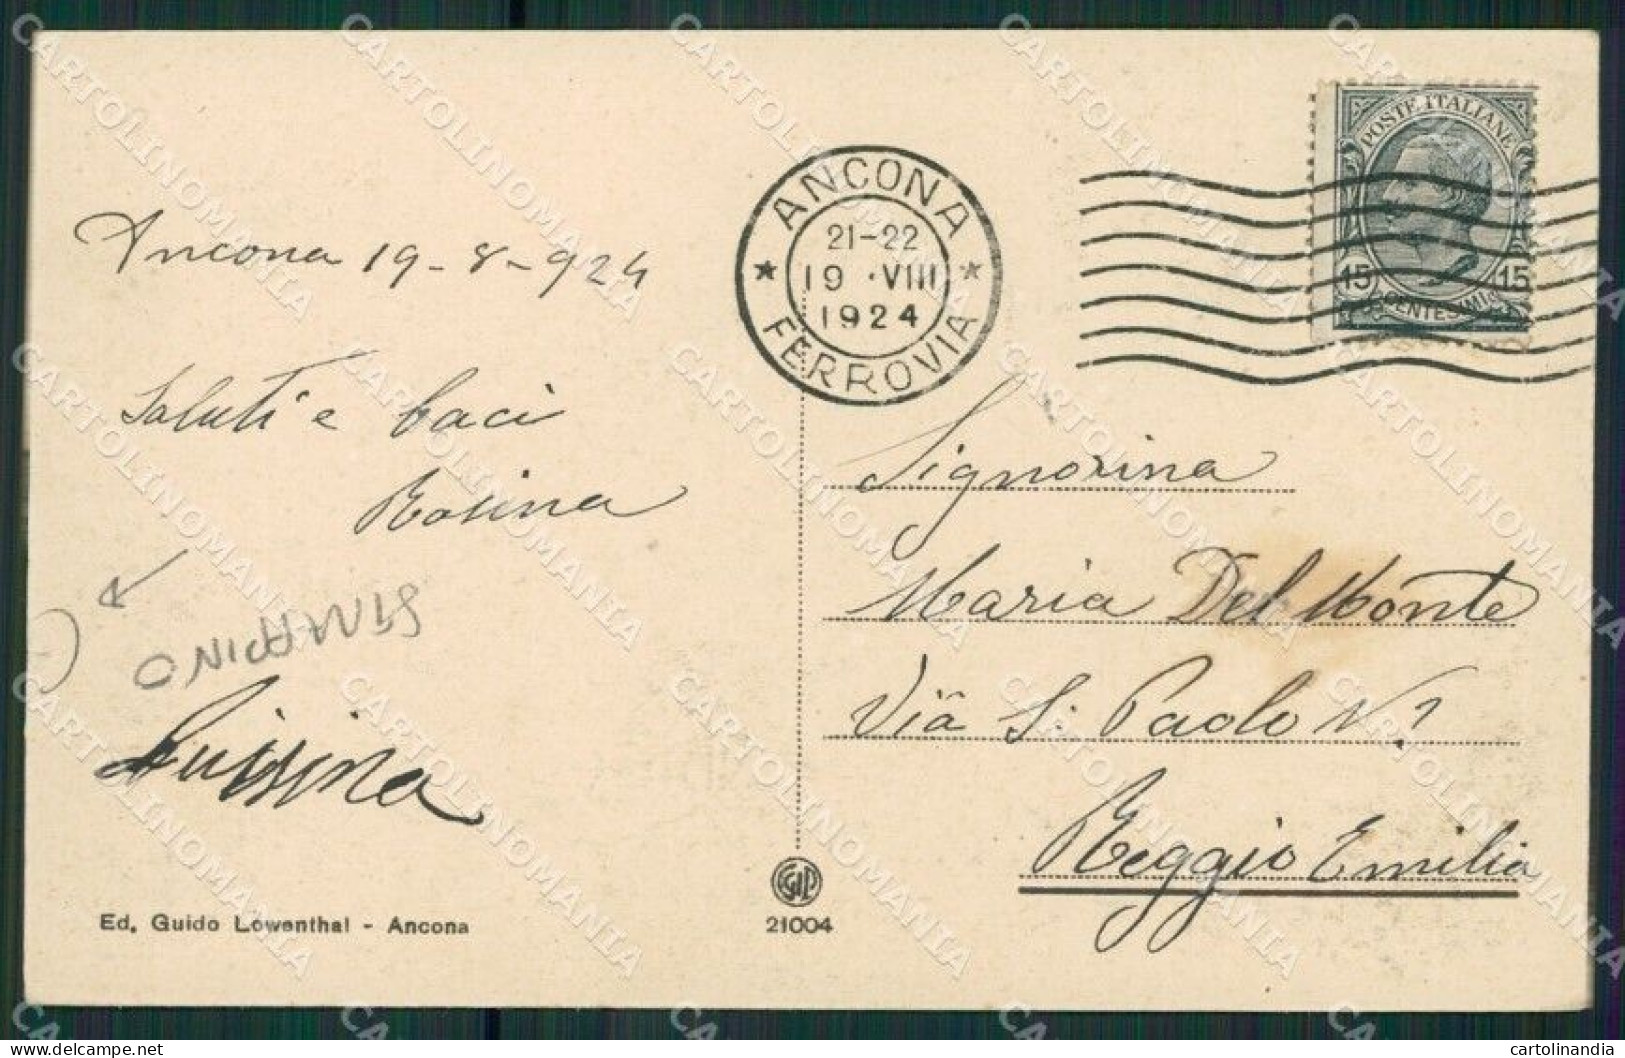 POSTE ITALIANE
15 15
CENTESIMI
ANCONA
21-22
19 ·VIII
1924
FERROVIA
Ancona 19-8-924
Saluti e baci
Rosina
Luisina
Signorina
Maria Del Monte
Via S. Paolo N. 1
Reggio Emilia
Ed. Guido Lowenthal - Ancona
21004
CARTOLINOMANIA
cartolinandia